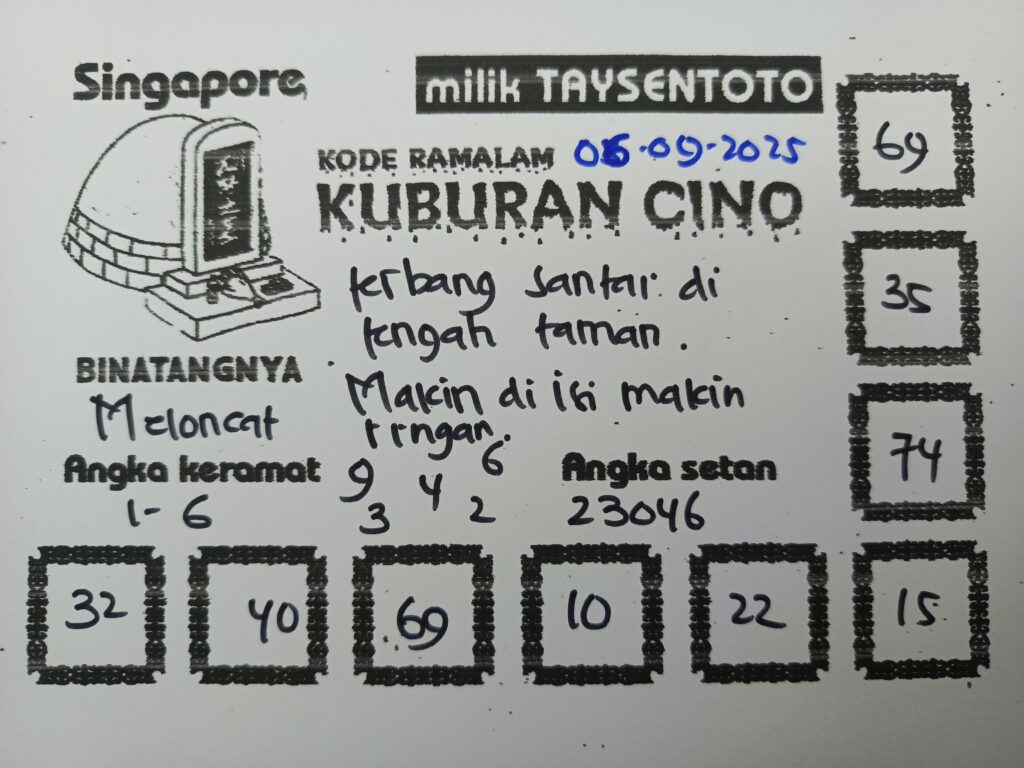 Singapore
milik TAYSENTOTO
KODE RAMALAM 06-09-2025
KUBURAN CINO
terbang santai di
tengah taman.
BINATANGNYA
Meloncat
Makin di isi makin
ringan.
Angka keramat
1-6
9 4 6
3 2
Angka setan
23046
69
35
74
32 40 69 10 22 15